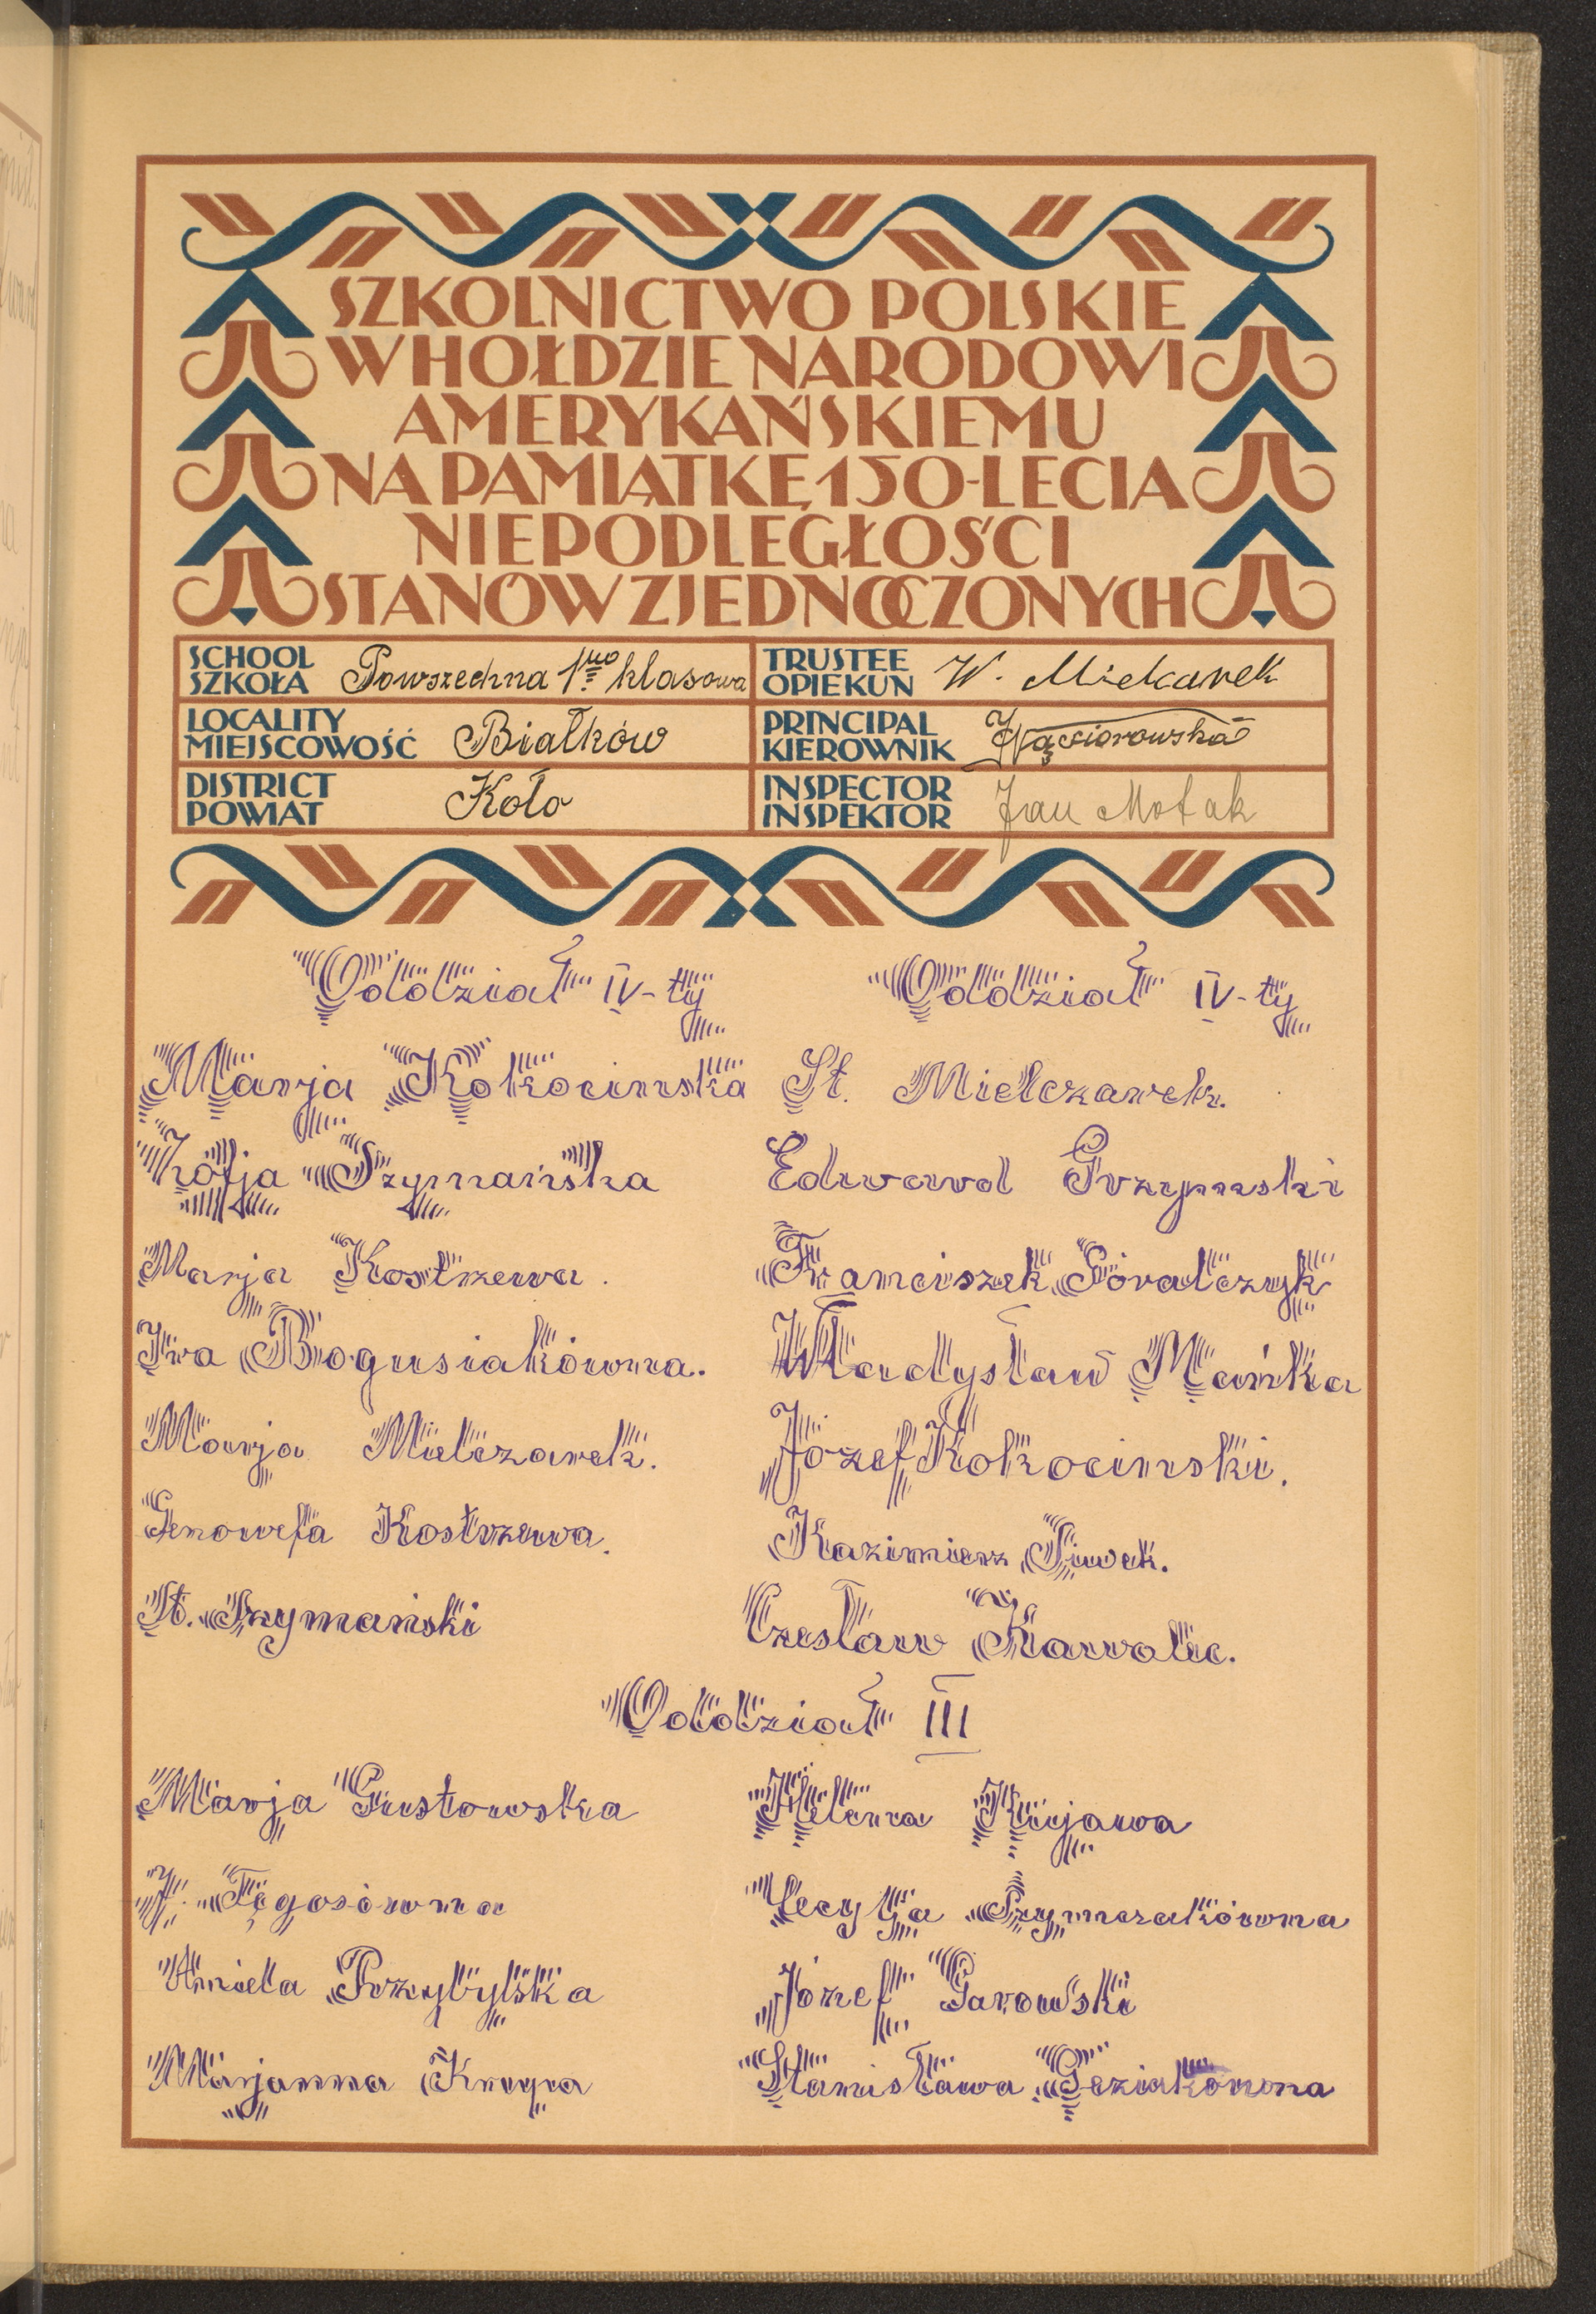 SZKOLNICTWO POLSKIE
W HOŁDZIE NARODOWI
AMERYKAŃSKIEMU
NA PAMIĄTKĘ 150-LECIA
NIEPODLEGŁOŚCI
STANÓW ZJEDNOCZONYCH
SCHOOL
SZKOŁA Powszechna 1-no klasowa
TRUSTEE
OPIEKUN W.
LOCALITY
MIEJSCOWOŚĆ Białków
PRINCIPAL
KIEROWNIK Wąsiorowska
DISTRICT
POWIAT Koło
INSPECTOR
INSPEKTOR Jan Motak
Oddział IV-ty
Marja Kokocinska
Zofja Szymańska
Marja Kostrzewa.
Iva Bogusiakówna.
Marja Mielczarek.
Genowefa Kostrzewa.
St. Szymański
Oddział IV-ty
St. Mielczarek.
Edward Grzymski
Franciszek Góralczyk
Władysław Mańka
Józef Kokocinski.
Kazimierz Siwek.
Czesław Kawalec.
Oddział III
Marja Gustowska
Tęgosówna
Aniela Przybylska
Marjanna Krupa
Helena Kujawa
Cecylja Szymczakówna
Józef Garowski
Stanisława Geziakówna